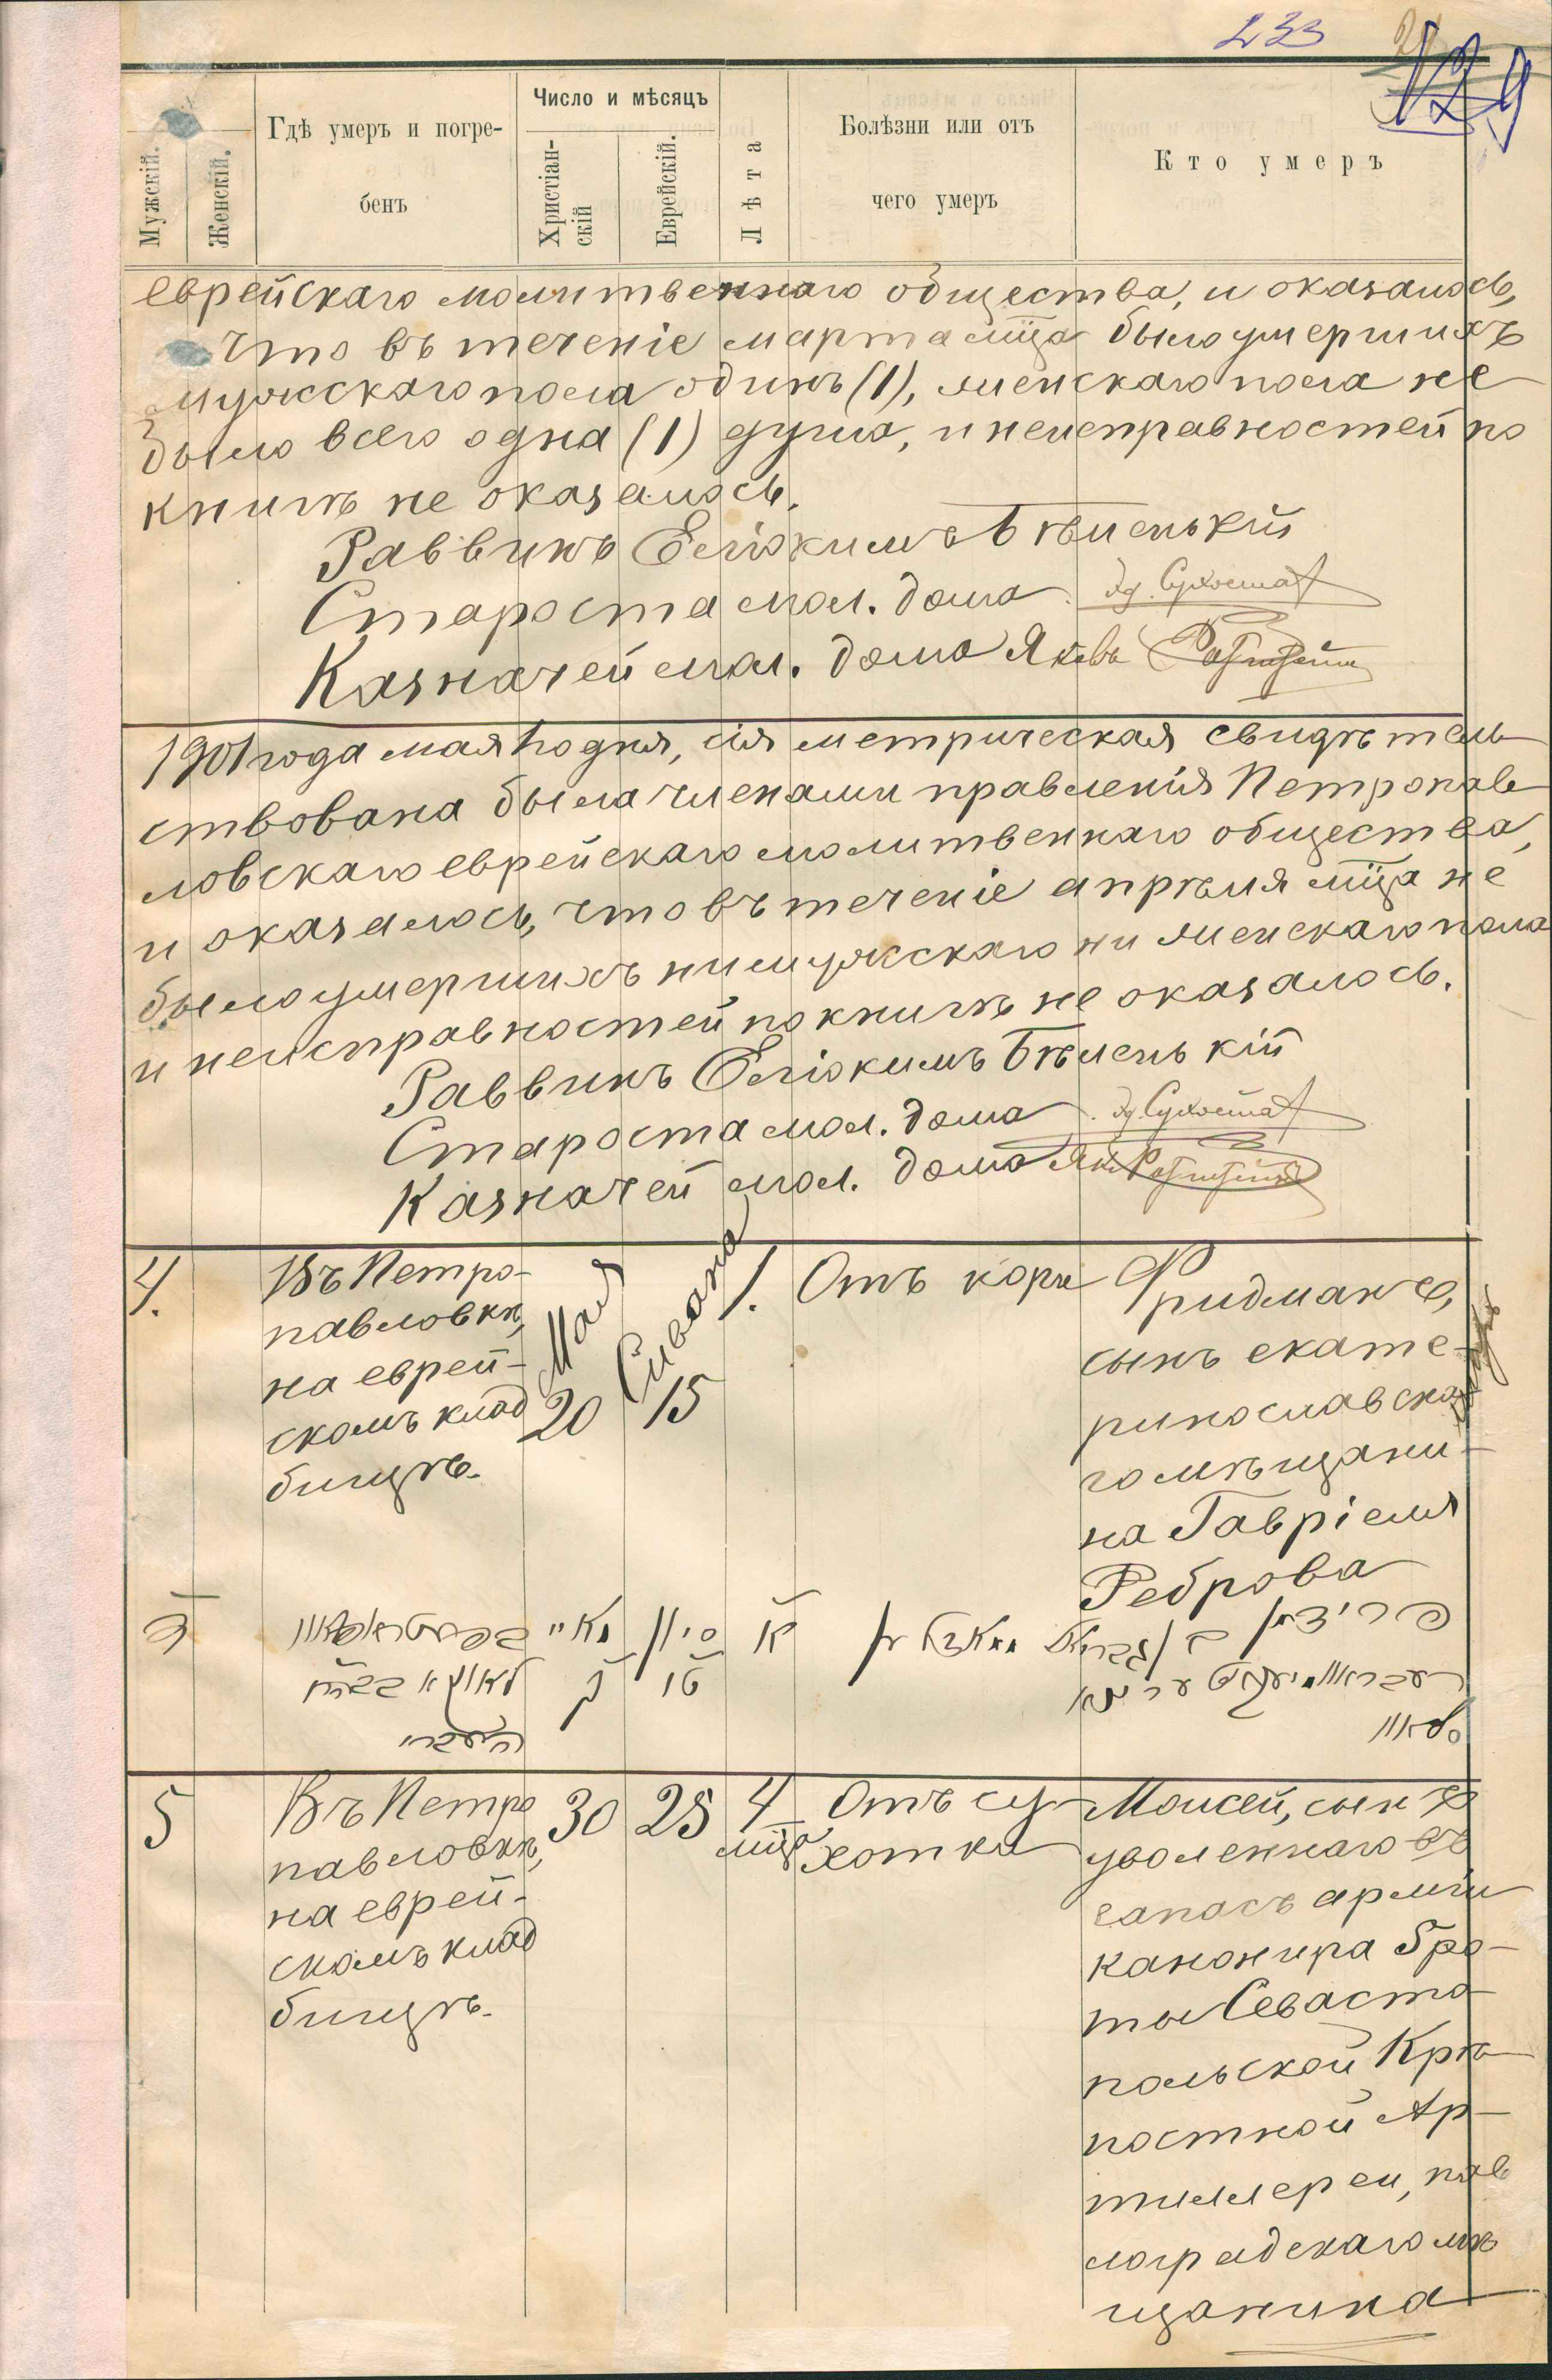 233
129
Мужскій.
Женскій.
Гдѣ умеръ и погре-
бенъ
Число и мѣсяцъ
Христіан-
скій
Еврейскій.
Лѣта
Болѣзни или отъ
чего умеръ
Кто умеръ
еврейскаго молитвеннаго общества, и оказалось,
что въ теченіе марта мца было умершихъ
мужсскаго пола одинъ (1), женскаго пола не
было всего одна (1) душа, и неисправностей по
книгѣ не оказалось.
Раввинъ Еліокимъ Бѣленькій
Староста мол. дома
Казначей мол. дома Яковъ
1901 года мая 1го дня, сія метрическая свидѣтель
ствована была членами правленія Петропав
ловскаго еврейскаго молитвеннаго общества,
и оказалось, что въ теченіе апрѣля мца не
было умершихъ ни мужсскаго ни женскаго пола
и неисправностей по книгѣ не оказалось.
Раввинъ Еліокимъ Бѣленькій
Староста мол. дома
Казначей мол. дома
4.
Въ Петро-
павловкѣ,
на еврей-
скомъ клад
бищѣ.
Мая
20
Сивана
15
1.
Отъ кори
Фридманъ,
сынъ екате-
ринославска
го мѣщани-
на Гавріеля
Реброва
5
Въ Петро
павловкѣ,
на еврей-
скомъ клад
бищѣ.
30
25
4
мца
Отъ су-
хотки
Моисей, сынъ
уволеннаго въ
запасъ арміи
канонира 5 ро-
ты Севасто-
польской Крѣ-
постной Ар-
тиллереи, пав
лоградскаго мѣ
щанина